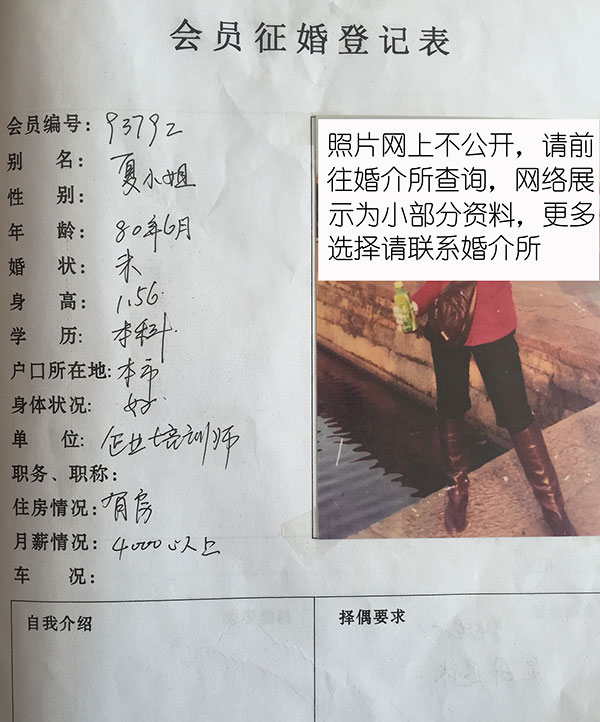 会员征婚登记表
会员编号：93792
别 名：夏小姐
性 别：
年 龄：80年6月
婚 状：未
身 高：1.56
学 历：本科
户口所在地：本市
身体状况：好
单 位：企业培训师
职务、职称：
住房情况：有房
月薪情况：4000以上
车 况：
照片网上不公开，请前
往婚介所查询，网络展
示为小部分资料，更多
选择请联系婚介所
自我介绍
择偶要求